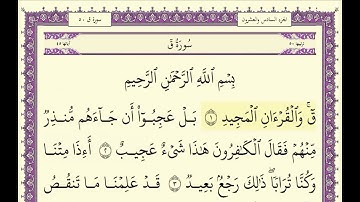 سورة ق ٥٠
الجزء السادس والعشرون
سُورَةُ قٓ
بِسْمِ اللَّهِ الرَّحْمَٰنِ الرَّحِيمِ
قٓ ۚ وَالْقُرْءَانِ الْمَجِيدِ ۝١ بَلْ عَجِبُوٓا۟ أَن جَآءَهُم مُّنذِرٌ
مِّنْهُمْ فَقَالَ الْكَٰفِرُونَ هَٰذَا شَىْءٌ عَجِيبٌ ۝٢ أَءِذَا مِتْنَا
وَكُنَّا تُرَابًا ۖ ذَٰلِكَ رَجْعٌۢ بَعِيدٌ ۝٣ قَدْ عَلِمْنَا مَا تَنقُصُ